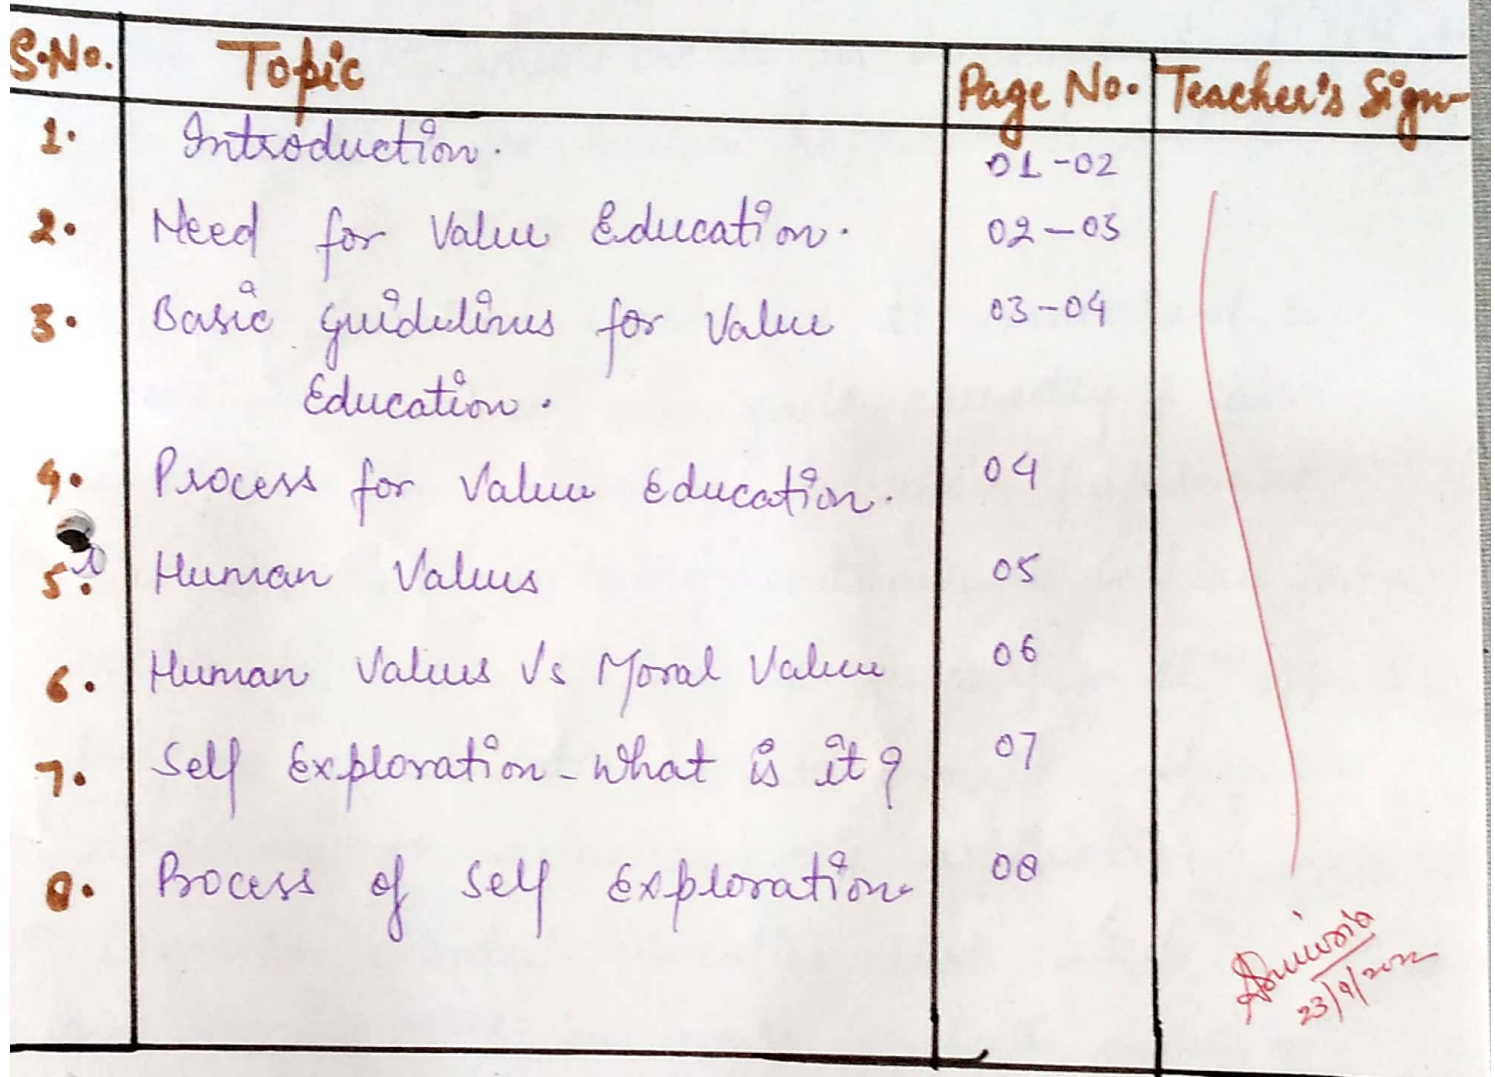 S.No. Topic Page No. Teacher's Sign
1. Introduction. 01-02
2. Need for Value Education. 02-03
3. Basic guidelines for Value 03-04
Education.
4. Process for Value Education. 04
5. Human Values 05
6. Human Values Vs Moral Value 06
7. Self Exploration - What is it? 07
8. Process of Self Exploration 08
23/9/2022